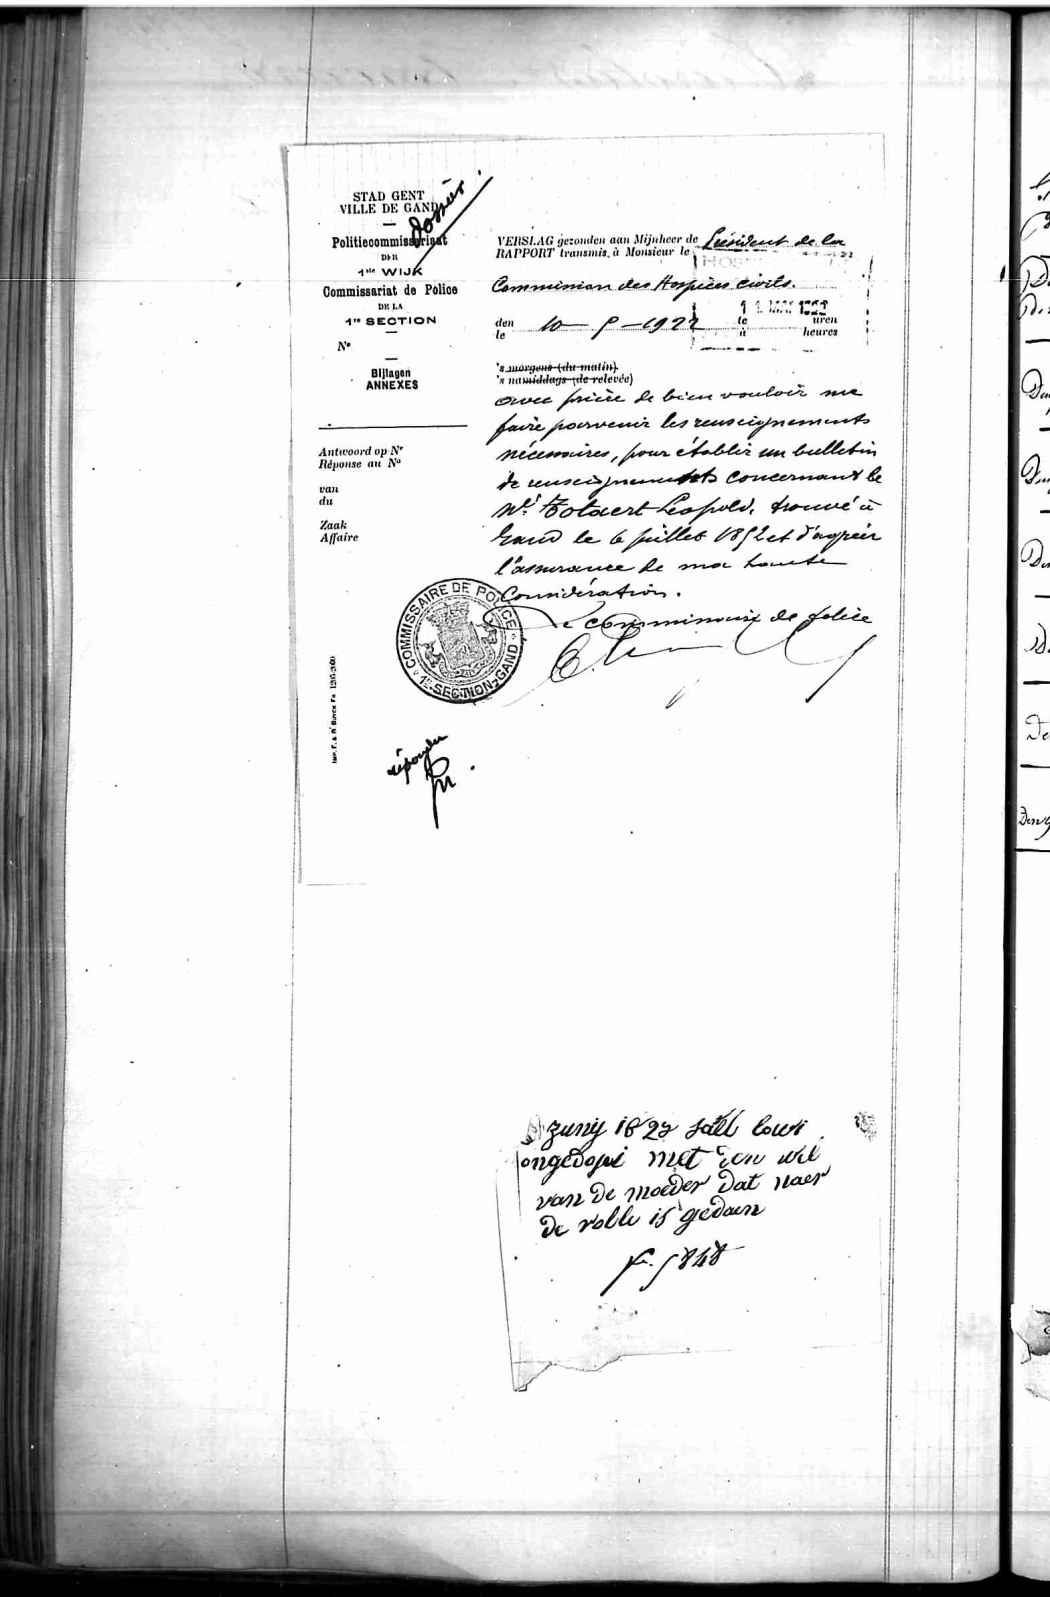 dossier
STAD GENT
VILLE DE GAND
Politiecommissariaat
DER
1ste WIJK
Commissariat de Police
DE LA
1re SECTION
No
Bijlagen
ANNEXES
Antwoord op Nr
Réponse au No
van
du
Zaak
Affaire
VERSLAG gezonden aan Mijnheer de Président de la
RAPPORT transmis à Monsieur le
HOS
Commission des Hospices civils.
den 10 - 5 - 1922 te uren
le à heures
's morgens (du matin)
's namiddags (de relevée)
avec prière de bien vouloir me
faire parvenir les renseignements
nécessaires, pour établir un bulletin
de renseignements concernant le
Né Léopold, trouvé à
Gand le 6 juillet 1852 et d'agréer
l'assurance de ma haute
Considération.
Le commissaire de police
COMMISSAIRE DE POLICE
1re SECTION - GAND
répondu
zunij 1827
ongedopt met den wil
van de moeder dat naer
de rolle is gedaen
5848